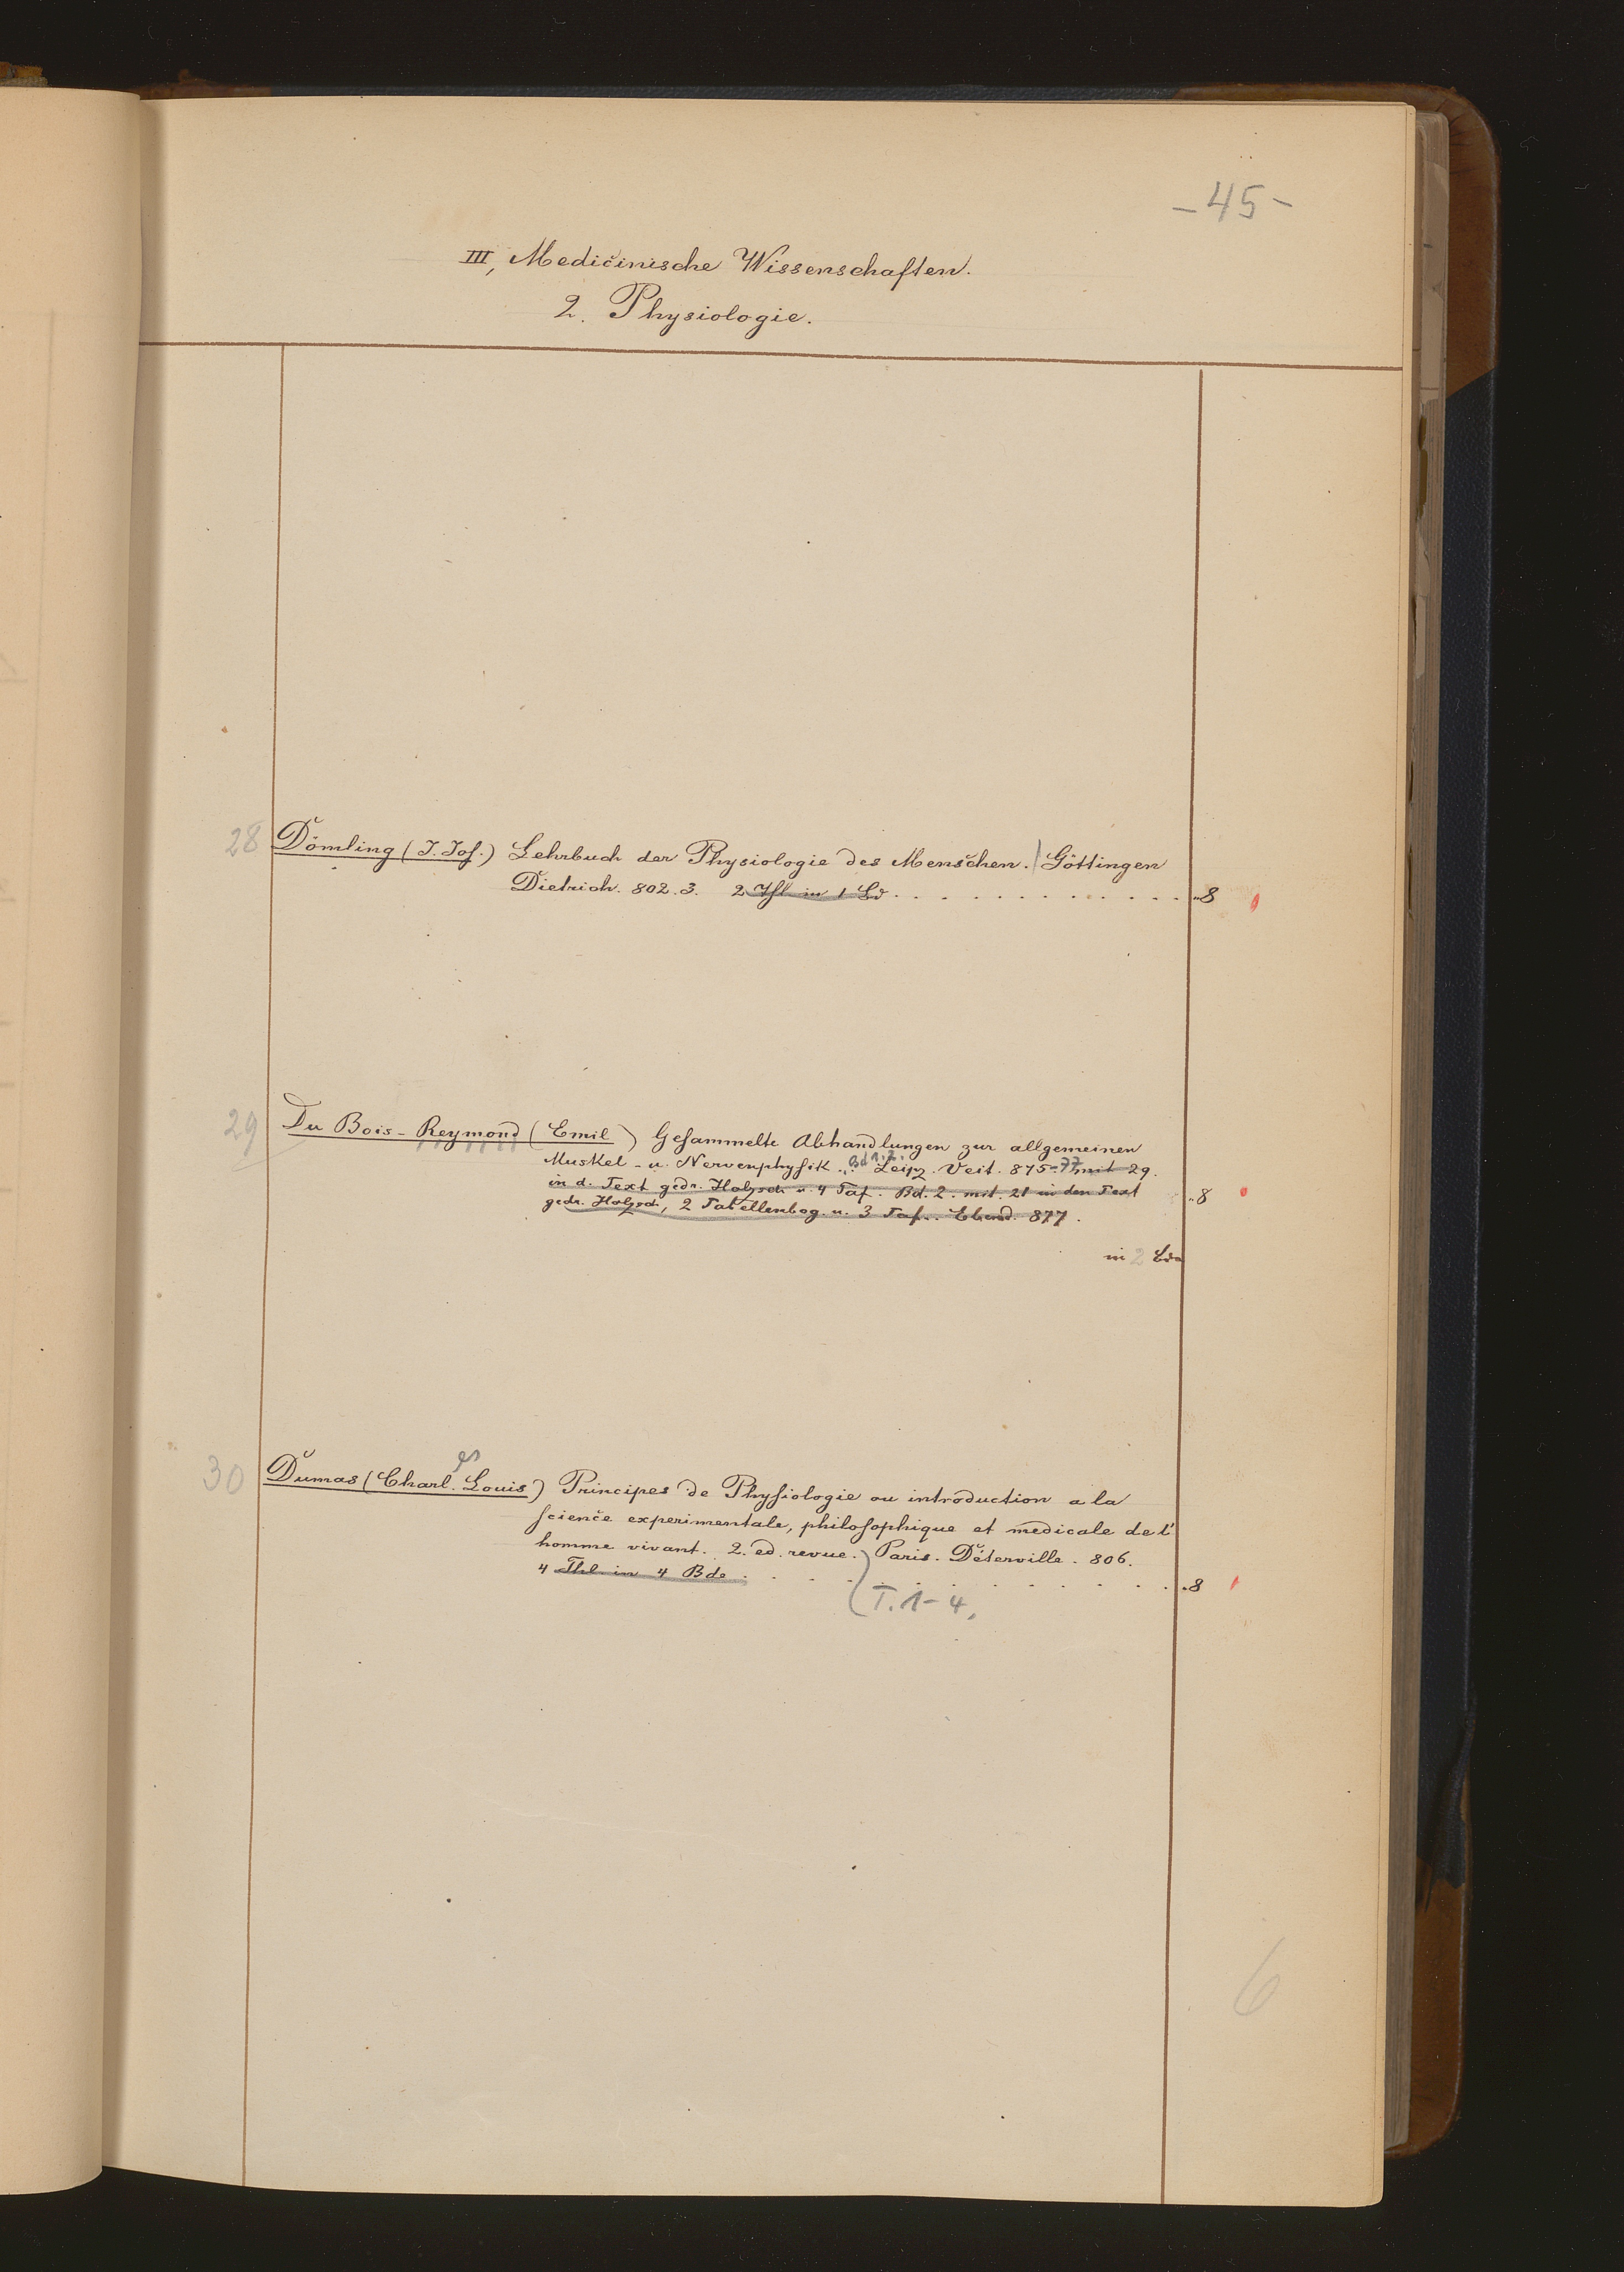 - 45 -
III, Medicinische Wissenschaften.
2. Physiologie.
28 Dömling (J. Jos.) Lehrbuch der Physiologie des Menschen. Göttingen
Dietrich. 802.3. 2 Thl in 1 Bd . . . . . . . . . . . . . "8
29 Du Bois-Reymond (Emil) Gesammelte Abhandlungen zur allgemeinen
Muskel- u. Nervenphysik. Bd 1. 2. Leipz. Veit. 875-77 mit 29.
in d. Text gedr. Holzsch u. 4 Taf. Bd. 2. mit. 21 in den Text "8
gedr. Holzsch, 2 Tabellenbog. u. 3 Taf.. Ebend. 877.
in 2 Bdn
30 Dumas (Charl.es Louis) Principes de Physiologie ou introduction a la
science experimentale, philosophique et medicale de l'
homme vivant. 2. ed. revue. Paris. Déterville. 806.
4 Thl. in 4 Bde . . . . . . . . . . . . . . .8
T. 1-4,
6